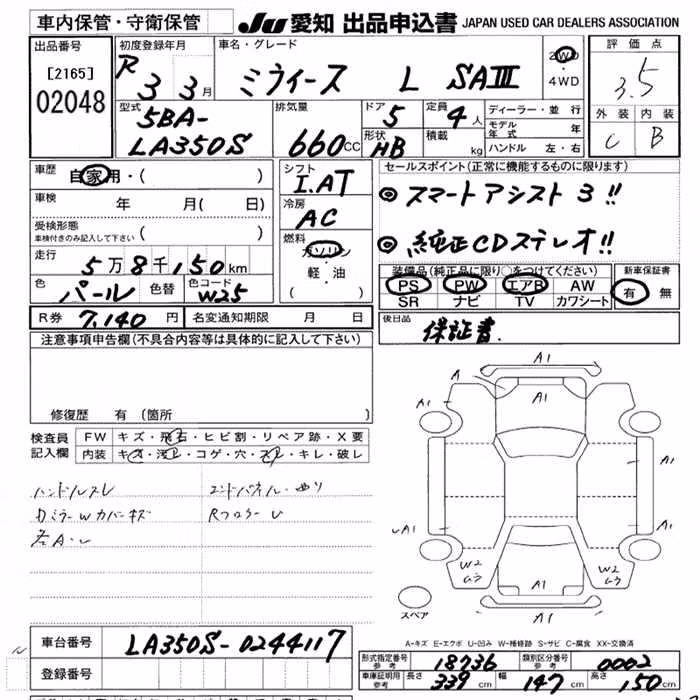 車内保管・守衛保管 JU 愛知 出品申込書 JAPAN USED CAR DEALERS ASSOCIATION
出品番号
[2165]
02048
初度登録年月
R 3 3月
車名・グレード
ミライース L SAⅢ
2WD
・
4WD
評価点
3.5
外装 内装
C B
型式
5BA-
LA350S
排気量
660CC
ドア
5
形状
HB
定員
4人
積載
kg
ディーラー・並行
モデル年式 年
ハンドル 左・右
車歴
自家用・( )
車検 年 月( 日)
受検形態
車検付きのみ記入して下さい ( )
走行 5万8千150km
色 パール 色替 色コード W25
R券 7,140円 名変通知期限 月 日
シフト
I.AT
冷房
AC
燃料
ガソリン
・
軽・油
( )
セールスポイント(正常に機能するものに限ります)
◎ スマートアシスト3!!
◎ 純正CDステレオ!!
装備品(純正品に限り○をつけてください)
PS PW エアB AW
SR ナビ TV カワシート
新車保証書
有 無
後日品
保証書.
注意事項申告欄(不具合内容等は具体的に記入して下さい)
修復歴 有(箇所 )
検査員
記入欄
FW キズ・飛石・ヒビ割・リペア跡・X要
内装 キズ・汚レ・コゲ・穴・スレ・キレ・破レ
ハンドルスレ
エンドパネル・曲リ
カミラーWカバーキズ
RフロアーU
左A・U
A1
A
A1
A1
A1
A1
UA1
A1
W2
W2
A1
A1
スペア
A-キズ E-エクボ U-凹み W-補修跡 S-サビ C-腐食 XX-交換済
車台番号 LA350S-0244117
登録番号
形式指定番号
参考
18736
類別区分番号
参考
0002
車庫証明用
参考
長さ 339cm 幅 147cm 高さ 150cm